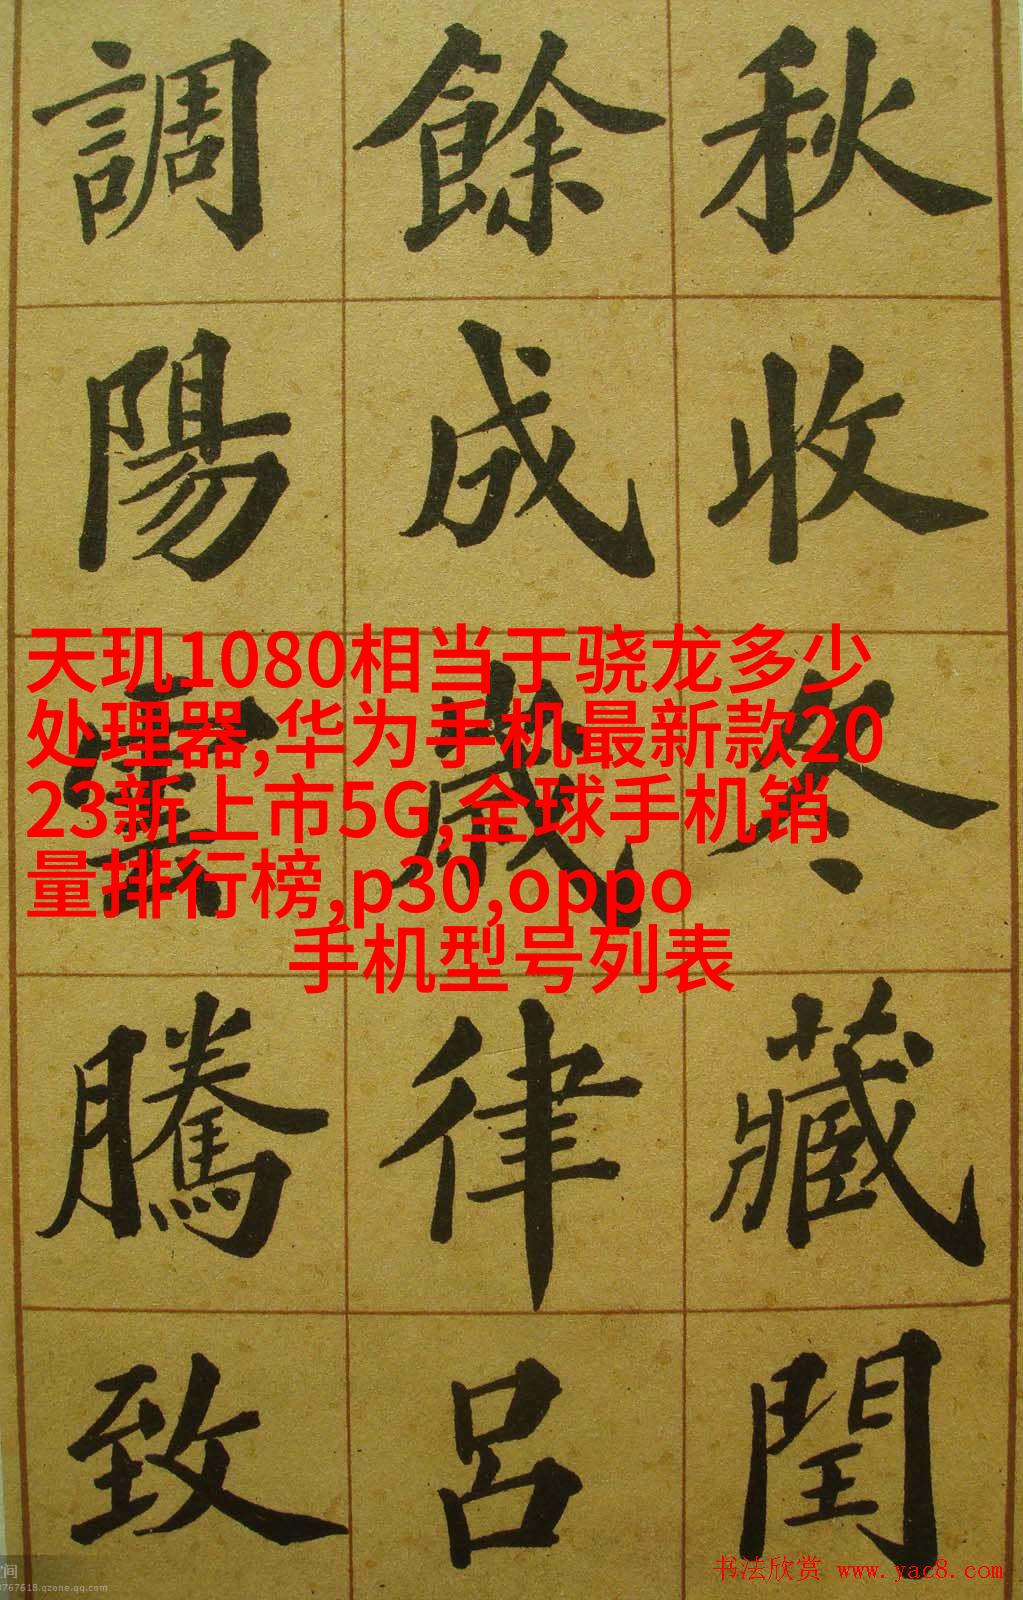 秋收冬藏閏
餘成歲律呂
調陽雲騰致
天玑1080相当于骁龙多少
处理器,华为手机最新款20
23新上市5G,全球手机销
量排行榜,p30,oppo
手机型号列表
书法欣赏 www.yac8.com
空间
3767618.qzone.qq.com